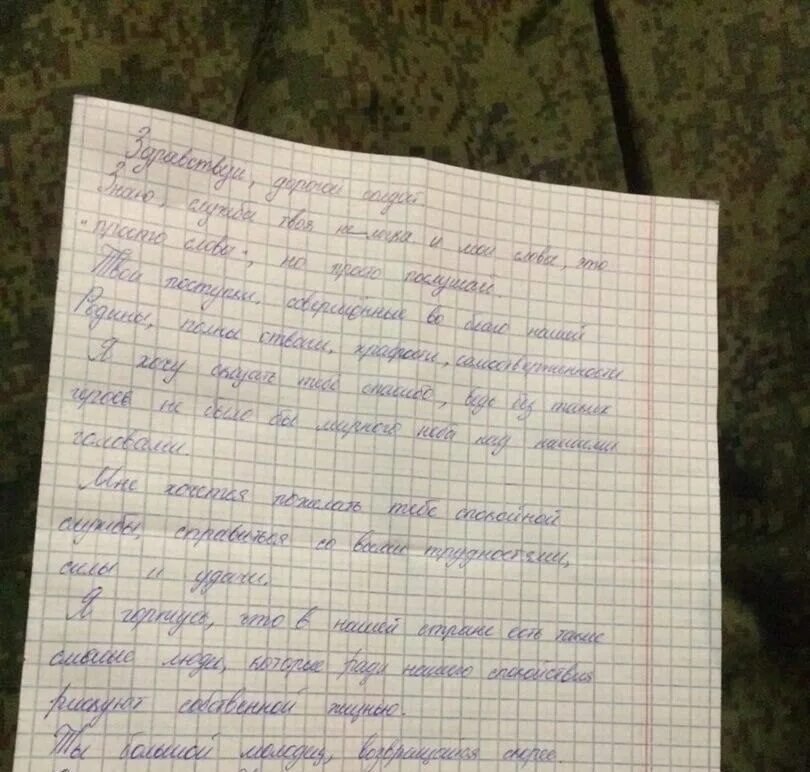 Здравствуй, дорогой солдат.
Знаю, служба твоя не легка и мои слова, это
"просто слова", но просто послушай.
Твои поступки, совершённые во благо нашей
Родины, полны отваги, храбрости, самоотверженности
Я хочу сказать тебе спасибо, ведь без таких
героев не было бы мирного неба над нашими
головами.
Мне хочется пожелать тебе спокойной
службы, справиться со всеми трудностями,
силы и удачи.
Я горжусь, что в нашей стране есть такие
смелые люди, которые ради нашего спокойствия
рискуют собственной жизнью.
Ты большой молодец, возвращайся скорее.